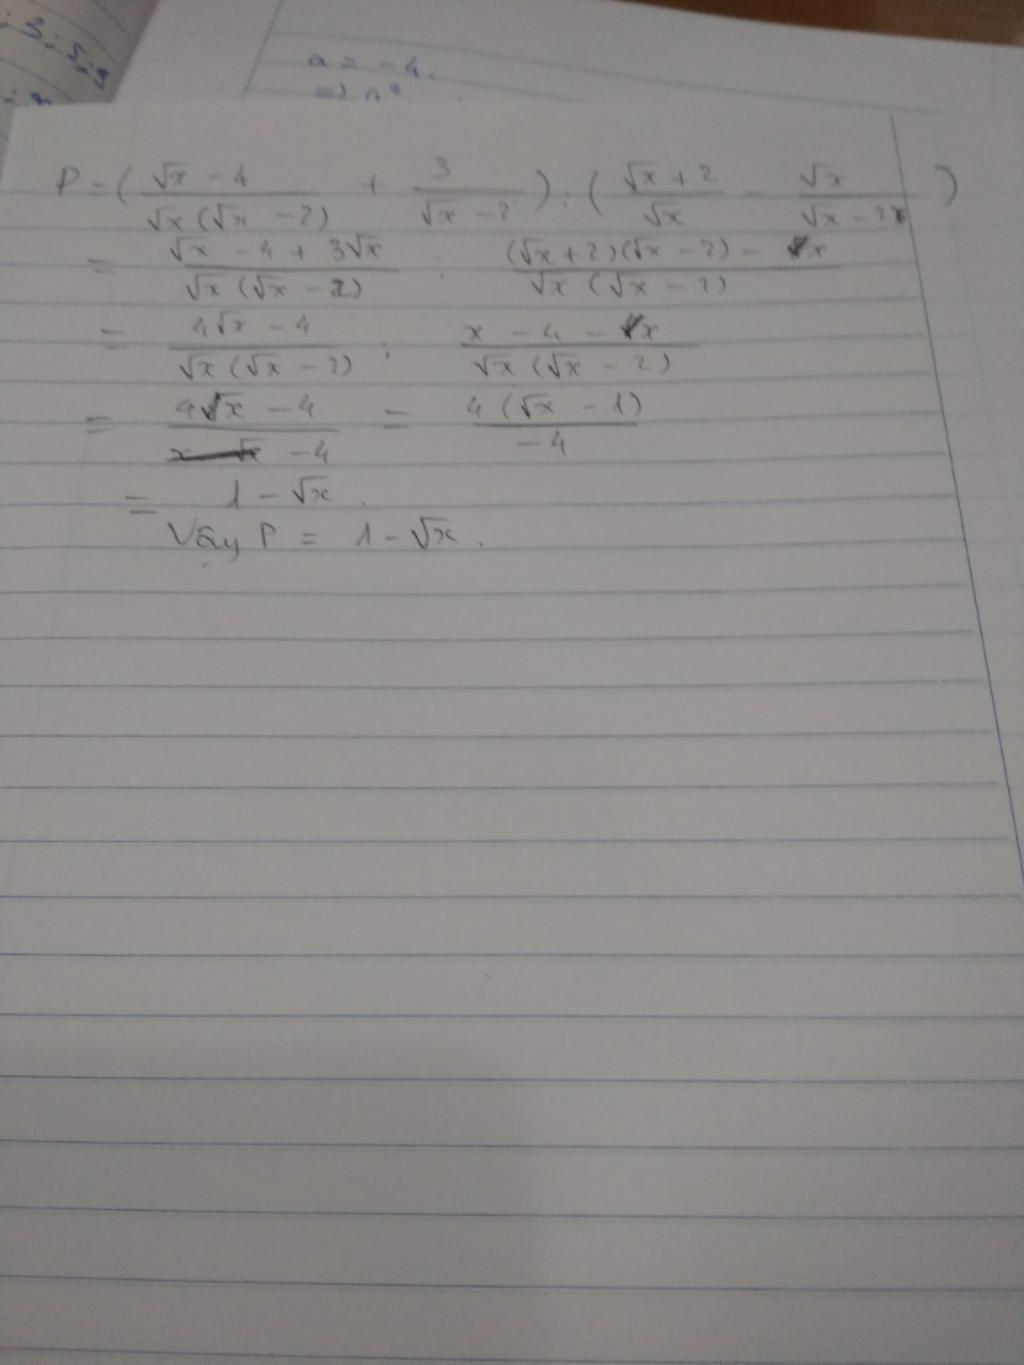 ; 3 ; 5 ; 9
a = -4.
P = ( (√x - 4)/(√x(√x - 2)) + 3/(√x - 2) ) : ( (√x + 2)/√x - √x/(√x - 2) )
= (√x - 4 + 3√x)/(√x(√x - 2)) : ((√x + 2)(√x - 2) - x)/(√x(√x - 2))
= (4√x - 4)/(√x(√x - 2)) : (x - 4 - x)/(√x(√x - 2))
= (4√x - 4)/(-4) = 4(√x - 1)/(-4)
= 1 - √x.
Vậy P = 1 - √x.